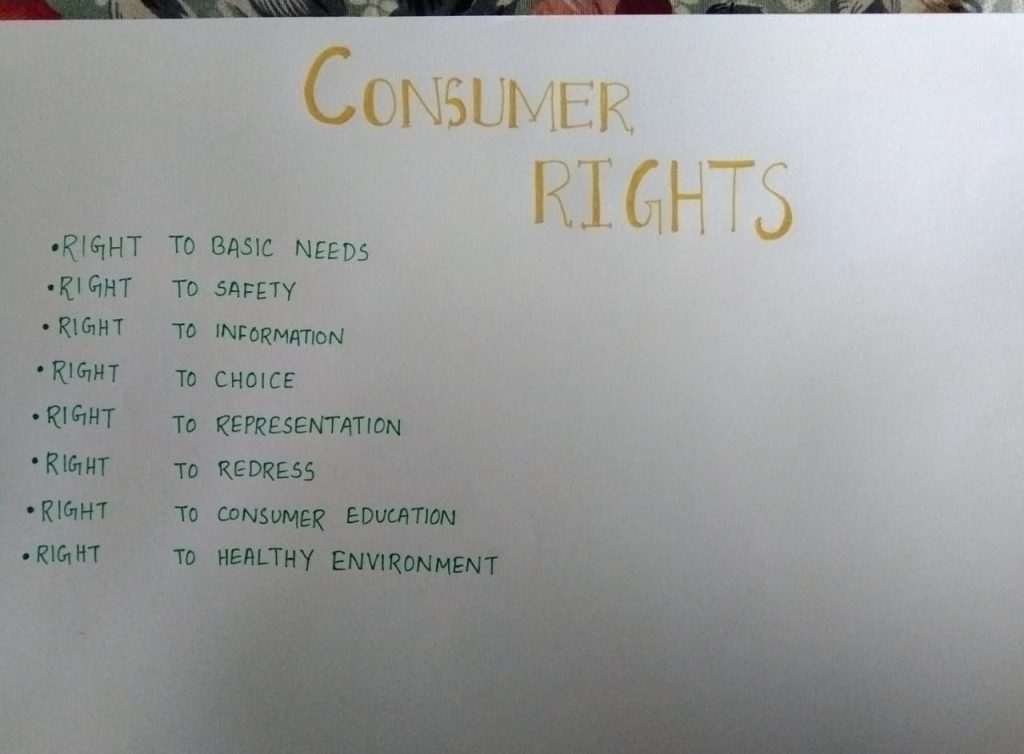 CONSUMER
RIGHTS
•RIGHT TO BASIC NEEDS
•RIGHT TO SAFETY
•RIGHT TO INFORMATION
•RIGHT TO CHOICE
•RIGHT TO REPRESENTATION
•RIGHT TO REDRESS
•RIGHT TO CONSUMER EDUCATION
•RIGHT TO HEALTHY ENVIRONMENT